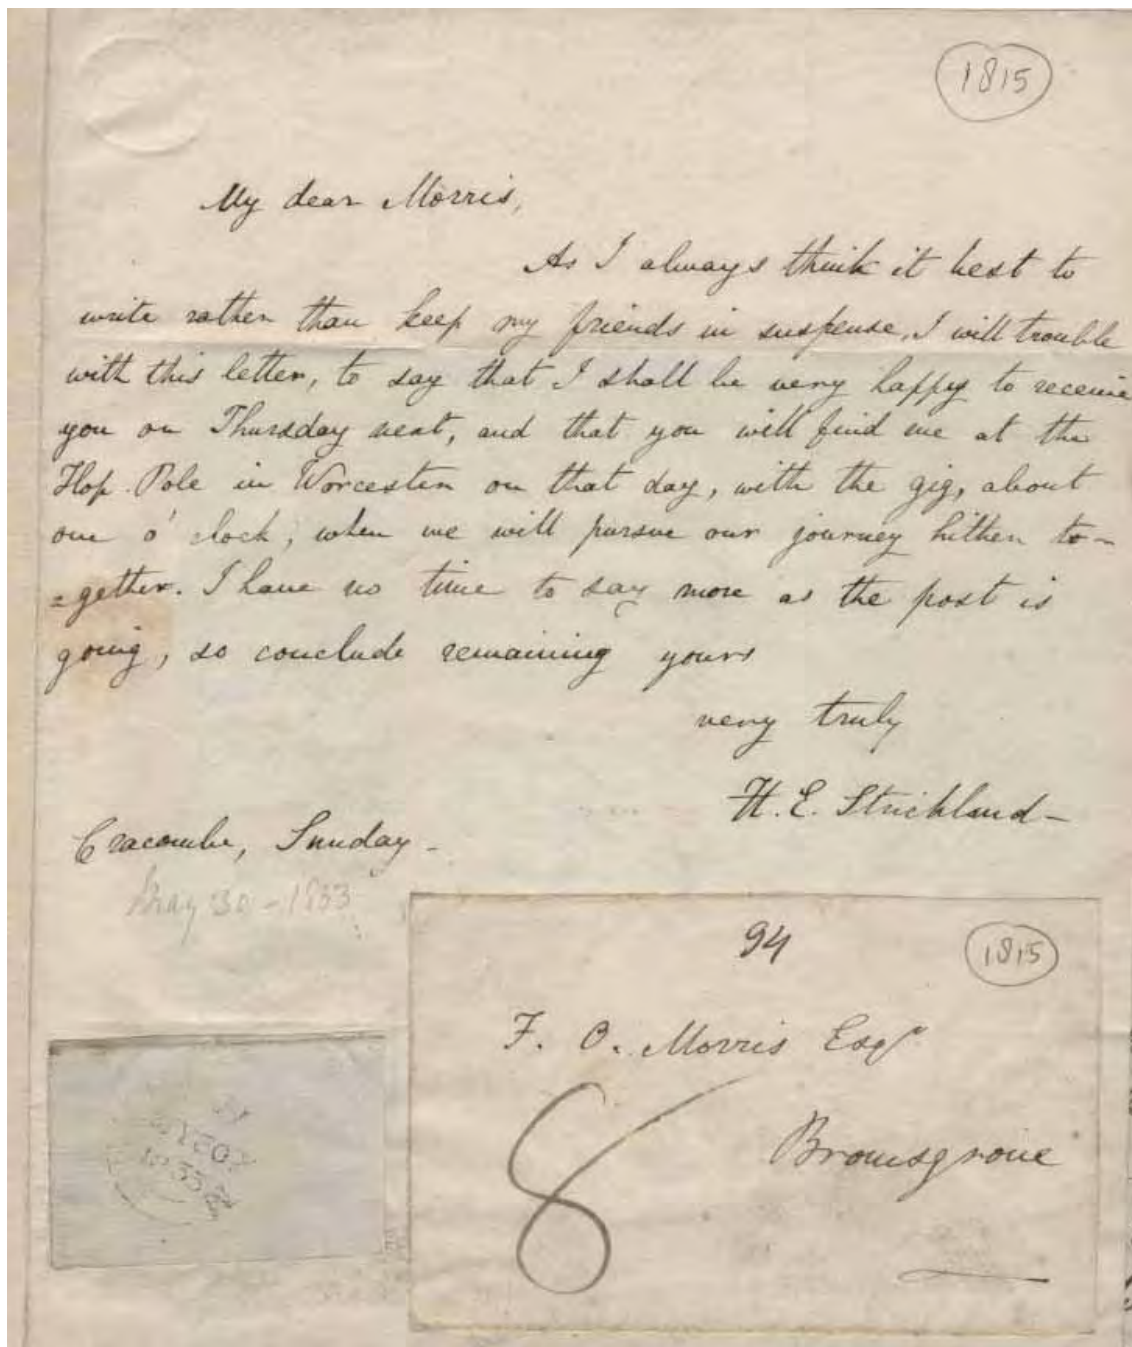 1815
My dear Morris,
As I always think it best to
write rather than keep my friends in suspense, I will trouble
with this letter, to say that I shall be very happy to receive
you on Thursday next, and that you will find me at the
Hop-Pole in Worcester on that day, with the gig, about
one o'clock, when we will pursue our journey hither to-
=gether. I have no time to say more as the post is
going, so conclude remaining yours
very truly
H. E. Strickland-
Cracombe, Sunday-
May 30-1833
94
1815
F. O. Morris Esqr
8
Bromsgrove
1833